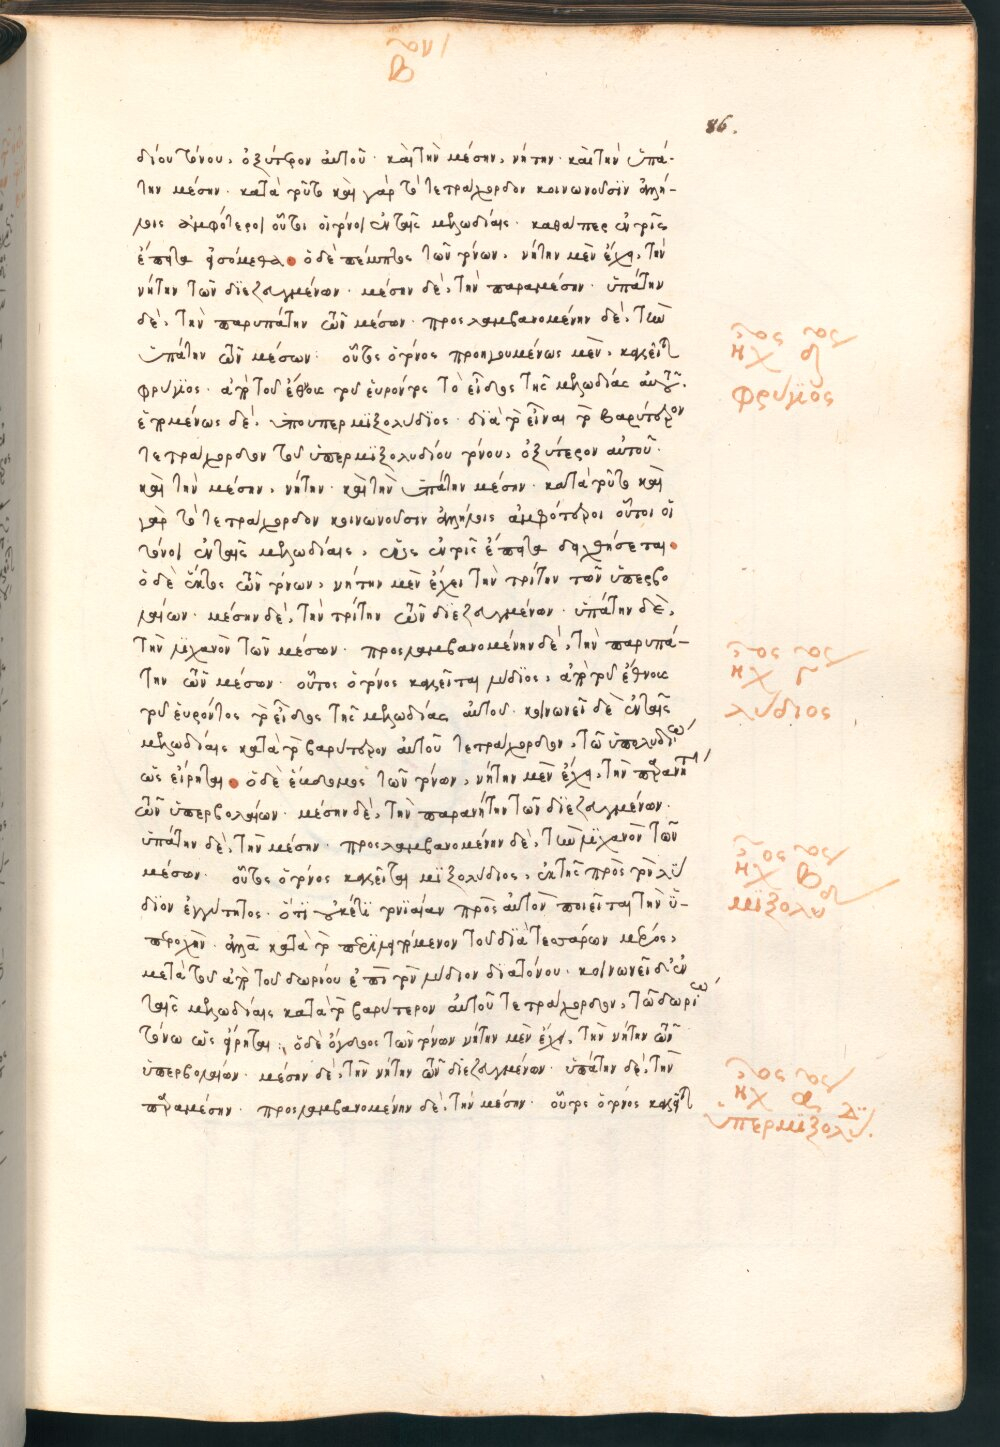 86.
δίου τόνου, ὀξύτερον αὐτοῦ · καὶ τὴν μέσην, νήτην · καὶ τὴν ὑπά-
την μέσην · κατὰ τοῦτο καὶ γὰρ τὸ τετράχορδον κοινωνοῦσϊν ἀλλή-
λοις ἀμφότεροι οὗτοι οἱ τόνοι ἐν ταῖς μελωδίαις · καθάπερ ἐν τοῖς
ἔπειτα εἰσόμεθα · ὁ δὲ πέμπτος τῶν τόνων, νήτην μὲν ἔχει, τὴν
νήτην τῶν διεζευγμένων · μέσην δὲ, τὴν παραμέσην · ὑπάτην
δὲ, τὴν παρυπάτην τῶν μέσων · προσλαμβανομένην δὲ, τὴν
ὑπάτην τῶν μέσων · οὗτος ὁ τόνος προηγουμένως μὲν, καλεῖται
φρύγιος · ἀπὸ τοῦ ἔθνους τοῦ εὑρόντος τὸ εἶδος τῆς μελωδίας αὐτοῦ ·
ἑπομένως δὲ, ὑπουπερμϊξολυδϊος · δϊὰ τὸ εἶναι τὸ βαρύτερον
τετράχορδον τοῦ ὑπερμϊξολυδίου τόνου, ὀξύτερον αὐτοῦ ·
καὶ τὴν μέσην, νήτην · καὶ τὴν ὑπάτην μέσην · κατὰ τοῦτο καὶ
γὰρ τὸ τετράχορδον κοινωνοῦσιν ἀλλήλοις ἀμφότεροι οὗτοι οἱ
τόνοι ἐν ταῖς μελωδίαις, ὡς ἐν τοῖς ἔπειτα δειχθήσεται ·
ὁ δὲ ἕκτος τῶν τόνων, νήτην μὲν ἔχει τὴν τρίτην τῶν ὑπερβο
λαίων · μέσην δὲ, τὴν τρίτην τῶν διεζευγμένων · ὑπάτην δὲ,
τὴν λϊχανὸν τῶν μέσων · προσλαμβανομένην δὲ, τὴν παρυπά-
την τῶν μέσων · οὗτος ὁ τόνος καλεῖται λύδϊος, ἀπὸ τοῦ ἔθνους
τοῦ εὑρόντος τὸ εἶδος τῆς μελωδίας αὐτοῦ · κοινωνεῖ δὲ ἐν ταῖς
μελωδίαις κατὰ τὸ βαρύτερον αὐτοῦ τετράχορδον, τῶ ὑπολυδίω
ὡς εἴρηται · ὁ δὲ ἕβδομος τῶν τόνων, νήτην μὲν ἔχει, τὴν παρανήτην
τῶν ὑπερβολαίων · μέσην δὲ, τὴν παρανήτην τῶν διεζευγμένων ·
ὑπάτην δὲ, τὴν μέσην · προσλαμβανομένην δὲ, τὴν λϊχανὸν τῶν
μέσων · οὗτος ὁ τόνος καλεῖται μϊξολύδιος, ἐκ τῆς πρὸς τὸν λύ
δϊον ἐγγύτητος · ὅτϊ οὐκέτϊ τονϊαίαν πρὸς αὐτὸν ποιεῖται τὴν ὑ-
περοχὴν · ἀλλὰ κατὰ τὸ περϊλειπόμενον τοῦ διὰ τεσσάρων μέρος,
μετὰ τοῦ ἀπὸ τοῦ δωρίου ἐπὶ τὸν λύδιον δϊατόνου · κοινωνεῖ δ' ἐν
ταῖς μελωδίαις κατὰ τὸ βαρύτερον αὐτοῦ τετράχορδον, τῶ δωρίω
τόνω ὡς εἴρηται · ὁ δὲ ὄγδοος τῶν τόνων νήτην μὲν ἔχει, τὴν νήτην τῶν
ὑπερβολαίων · μέσην δὲ, τὴν νήτην τῶν διεζευγμένων · ὑπάτην δὲ, τὴν
παραμέσην · προσλαμβανομένην δὲ, τὴν μέσην · οὗτος ὁ τόνος καλεῖται
ἦχος δος
φρύγϊος
ἦχος γος
λύδιος
ἦχος βος
μϊξολυδ
ἦχος αος
ὑπερμϊξολύδϊ.